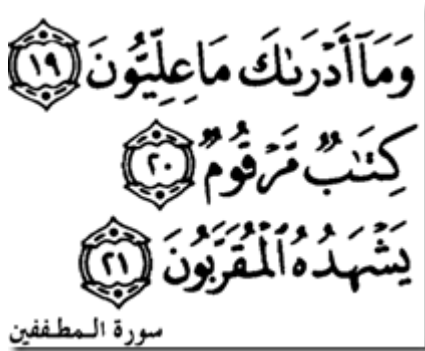 وَمَآ أَدْرَىٰكَ مَا عِلِّيُّونَ ١٩
كِتَٰبٌ مَّرْقُومٌ ٢٠
يَشْهَدُهُ ٱلْمُقَرَّبُونَ ٢١
سورة المطففين